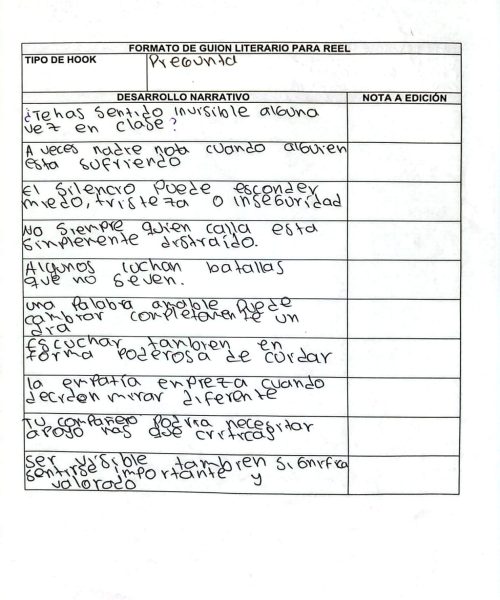 FORMATO DE GUION LITERARIO PARA REEL
TIPO DE HOOK Pregunta
DESARROLLO NARRATIVO NOTA A EDICIÓN
¿Te has sentido invisible alguna
vez en clase?
A veces nadie nota cuando alguien
esta sufriendo
El silencio puede esconder
miedo, tristeza o inseguridad
No siempre quien calla esta
simplemente distraido.
Algunos luchan batallas
que no se ven.
una palabra amable puede
cambiar completamente un
dia
Escuchar tambien en
forma poderosa de cuidar
la empatía empieza cuando
deciden mirar diferente
Tu compañero podria necesitar
apoyo mas que criticas
Ser visible tambien significa
sentirse importante y
valorado